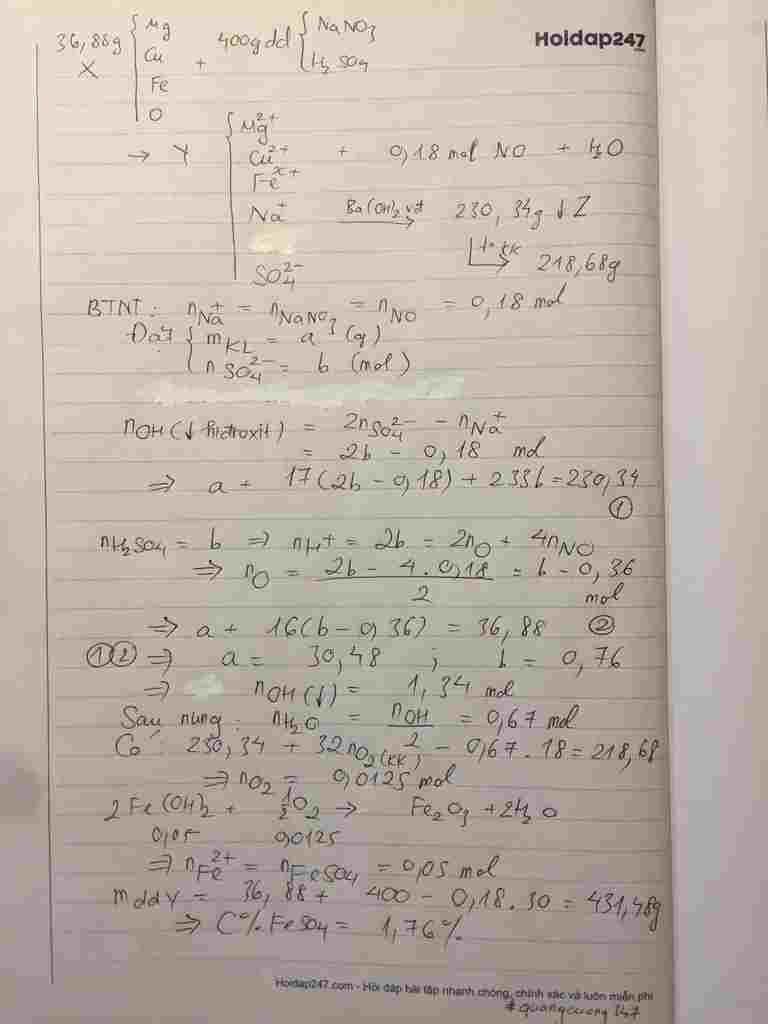 36,88g { Mg
Cu
Fe
O
X + 400g dd { NaNO3
H2SO4
Hoidap247
→ Y { Mg2+
Cu2+ + 0,18 mol NO + H2O
Fex+
Na+ Ba(OH)2 vđ → 230,34g ↓ Z
to kk → 218,68g
SO42-
BTNT: nNa+ = nNaNO3 = nNO = 0,18 mol
Đặt { mKL = a (g)
nSO42- = b (mol)
nOH (↓ hidroxit) = 2nSO42- - nNa+
= 2b - 0,18 mol
⇒ a + 17(2b - 0,18) + 233b = 230,34
①
nH2SO4 = b ⇒ nH+ = 2b = 2nO + 4nNO
⇒ nO = (2b - 4.0,18)/2 = b - 0,36
mol
⇒ a + 16(b - 0,36) = 36,88 ②
①② ⇒ a = 30,48 ; b = 0,76
⇒ nOH (↓) = 1,34 mol
Sau nung: nH2O = nOH/2 = 0,67 mol
Có: 230,34 + 32nO2(KK) - 0,67.18 = 218,68
⇒ nO2 = 0,0125 mol
2Fe(OH)2 + 1/2O2 → Fe2O3 + 2H2O
0,05 0,0125
⇒ nFe2+ = nFeSO4 = 0,05 mol
mddY = 36,88 + 400 - 0,18.30 = 431,48g
⇒ C% FeSO4 = 1,76%
Hoidap247.com - Hỏi đáp bài tập nhanh chóng, chính xác và luôn miễn phí
#quangcuong347